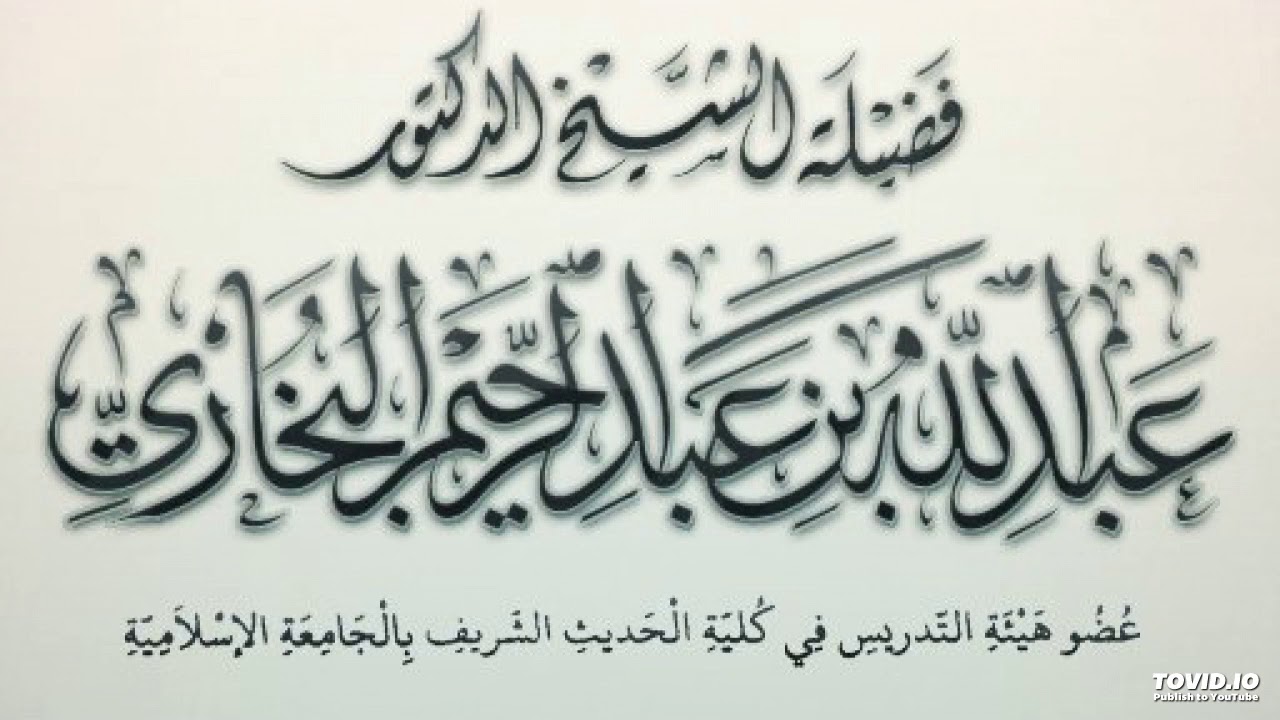 فَضِيْلَة الشَّيْخ الدكتور
عَبد اللَّهُ بنِ عَبدِ الرَّحِيْم البُخَارِيّ
عُضُو هَيْئَةِ التَّدريسِ فِي كُليَّةِ الْحَديثِ الشَّريفِ بِالْجَامِعَةِ الإسْلاَمِيَّةِ
TOVID.IO
Publish to YouTube